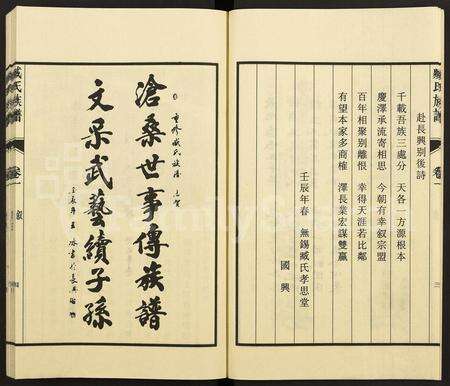 臧氏族譜
卷一
赴長興別後詩
千載吾族三處分　天各一方源根本
慶澤承流寄相思　今朝有幸叙宗盟
百年相聚別離恨　幸得天涯若比鄰
有望本家多商榷　澤長業宏謀雙贏
壬辰年春　無錫臧氏孝思堂
國興
重修臧氏族譜
滄桑世事傳族譜
文昇武藝續子孫
臧氏族譜
卷一
叙